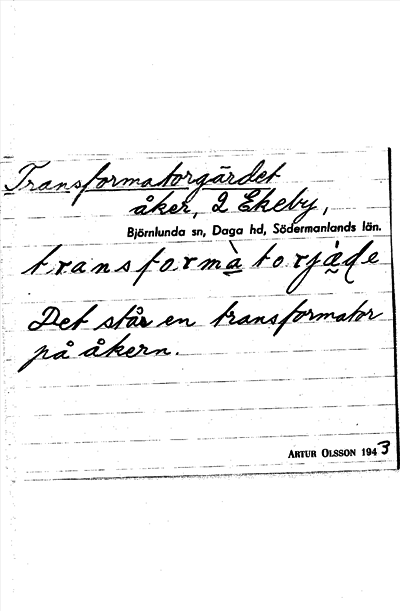 Transformatorgärdet
åker, 2 Ekeby,
Björnlunda sn, Daga hd, Södermanlands län.
transformà̲torjä̀de
Det står en transformator
på åkern.
ARTUR OLSSON 1943